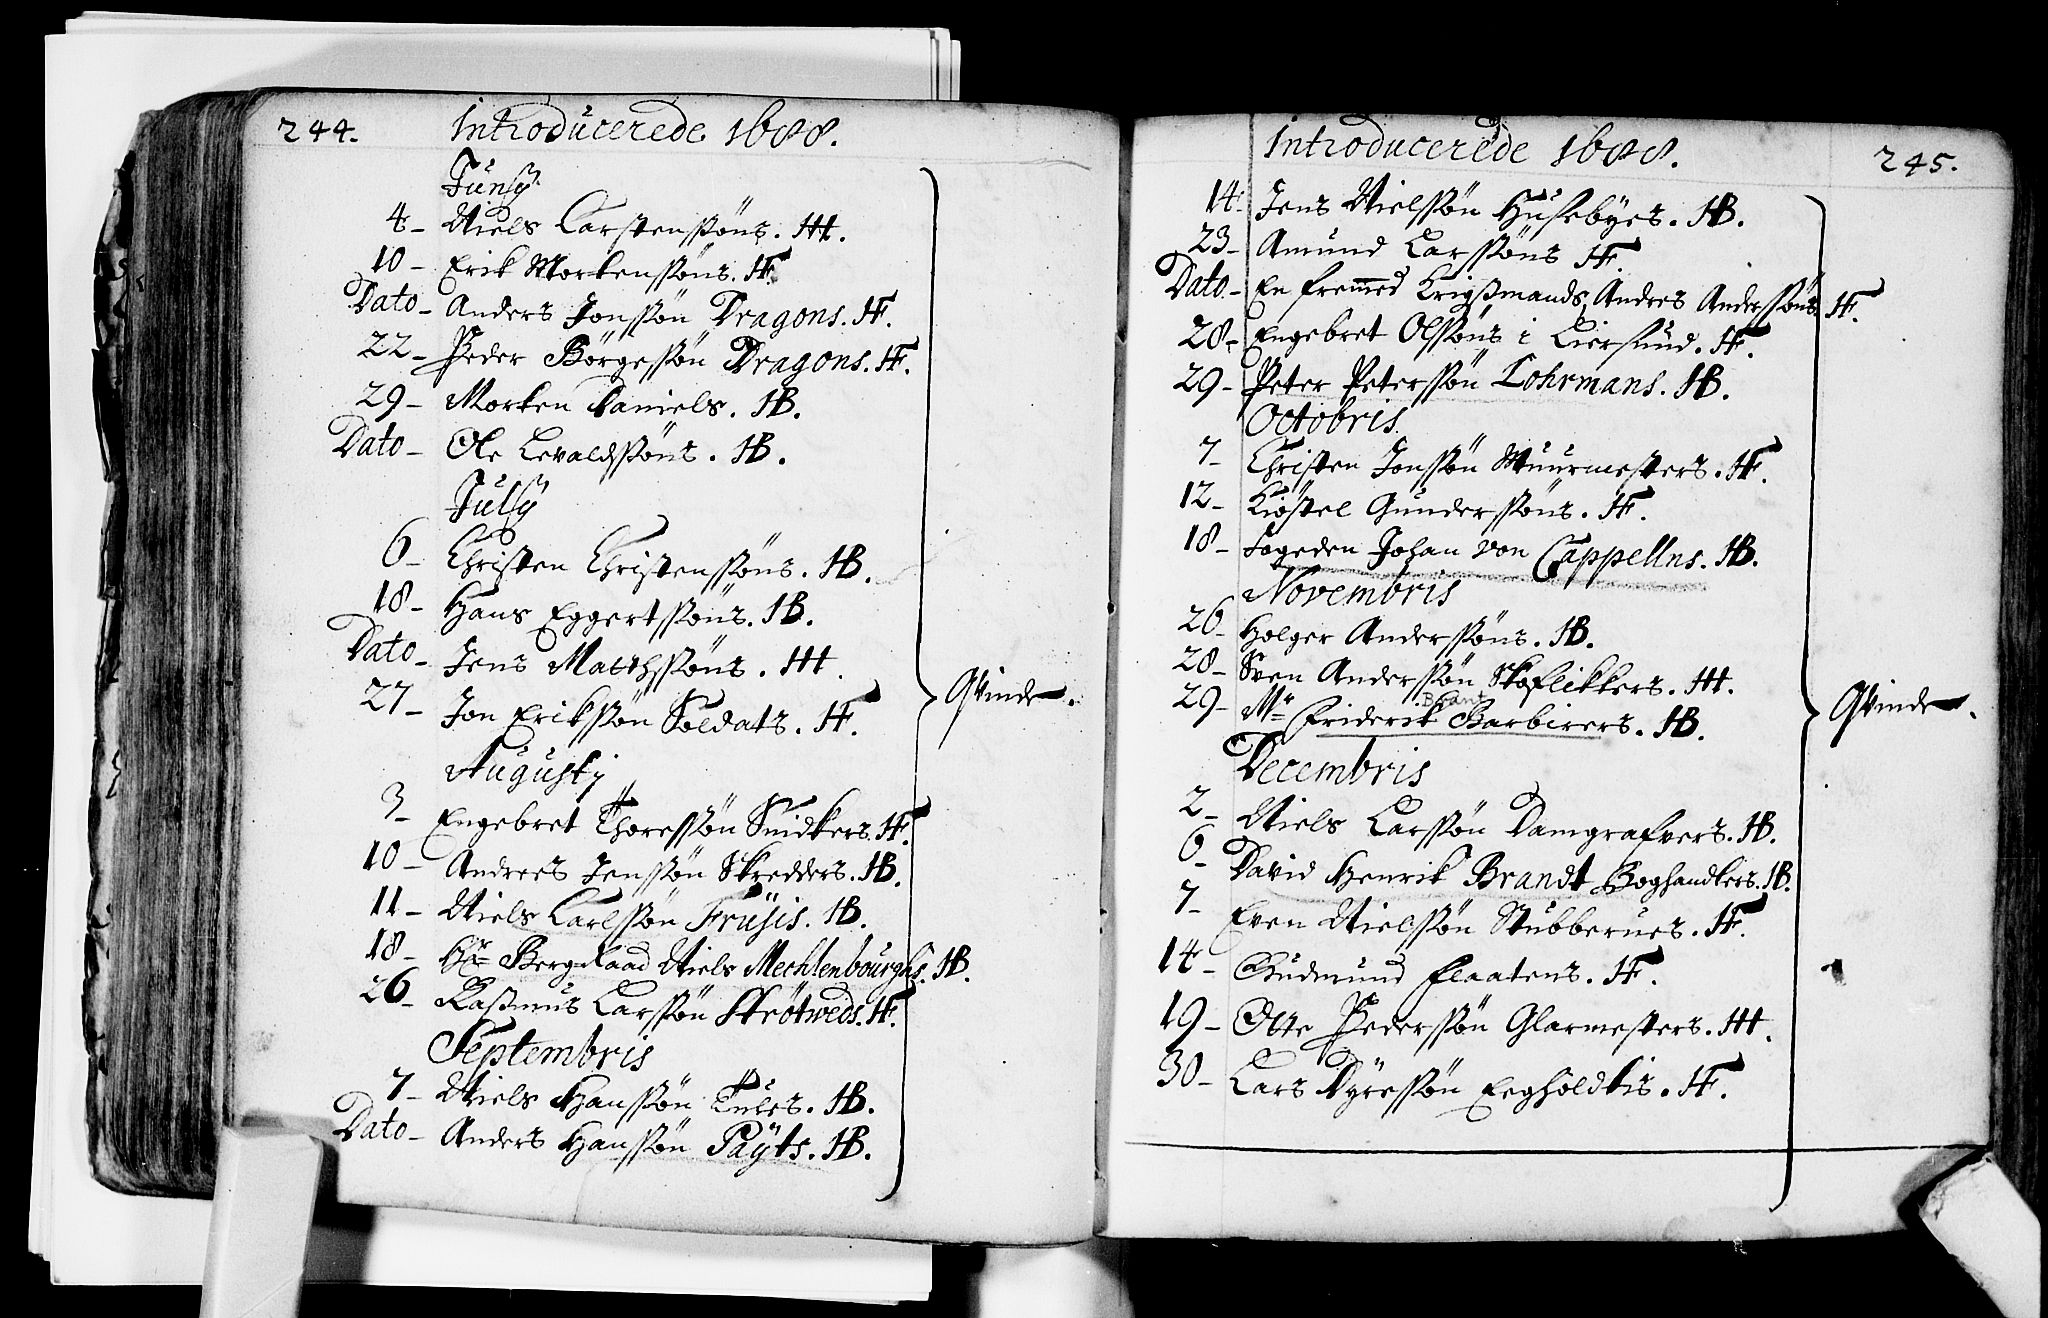 244. Introducerede 1688.
Junij
4 - Niels Larssenssøns. HH.
10 - Erik Mortenssøns. HF.
Dato - Anders Jonssøn Dragons. HF.
22 - Peder Börgessøn Dragons. HF.
29 - Morten Daniels. HB.
Dato - Ole Levaldssøns. HB.
Julij
6 - Christen Christenssøns. HB.
18 - Hans Eggertssøns. HB.
Dato - Jens Matthssøns. HH.
27 - Jon Erikssøn Soldats. HF.
Qvinde.
Augustj
3 - Engebret Thoressøn Snidkers. HF.
10 - Andrees Jenssøn Skredders. HB.
11 - Niels Carlssøn Früjis. HB.
18 - Hr Bergraad Niels Mechlenbourghs. HB.
26 - Rasmus Larssøn Strötweds. HF.
Septembris
7 - Niels Hanssøn Tules. HB.
Dato - Anders Hanssøn Payts. HB.
Introducerede 1688. 245.
14 - Jens Nielssøn Husebyes. HB.
23 - Amund Larssøns HF.
Dato - En fremmed Krigssmands Andres Anderssøns HF.
28 - Engebret Olssøns i Liersund. HF.
29 - Peter Peterssøn Lohrmans. HB.
Octobris
7 - Christen Jonssøn Muurmesters. HF.
12 - Kiøstel Gunderssøns. HF.
18 - Fogeden Johan von Cappellns. HB.
Novembris
26 - Holger Anderssøns. HB.
28 - Sven Anderssøn Skoflikkers. HH.
Brant
29 - Mr Friderik Barbirers. HB.
Qvinde.
Decembris
2 - Niels Larssøn Damgrafvers. HB.
6 - David Henrik Brandt Boghandlers. HB.
7 - Even Nielssøn Stubberues. HF.
14 - Gudmund Flaatens. HF.
19 - Otte Pederssøn Glarmesters. HH.
30 - Lars Dyressøn Eegholdtis. HF.